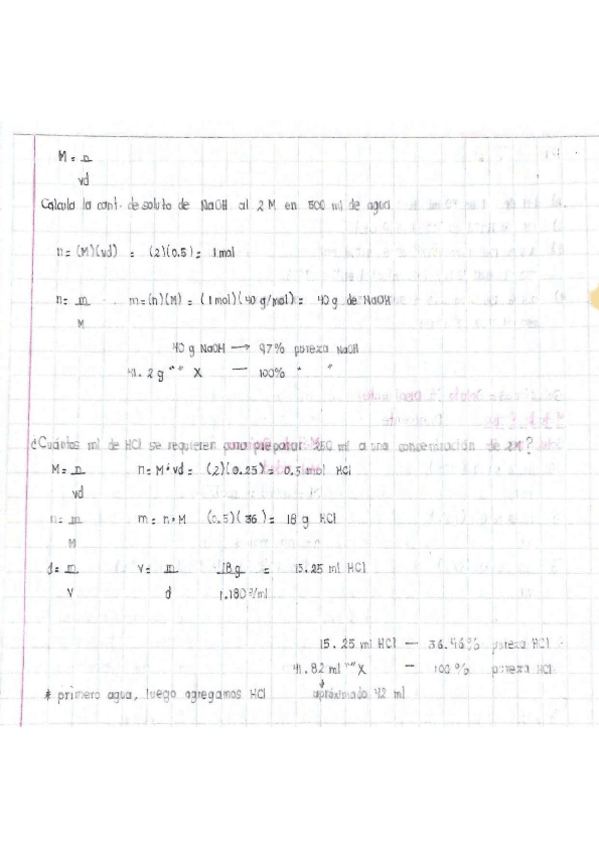 M = n
vd
Calcula la cant. de soluto de NaOH al 2 M en 500 ml de agua
n = (M)(vd) = (2)(0.5) = 1 mol
n = m m = (n)(M) = (1 mol)(40 g/mol) = 40 g de NaOH
M
40 g NaOH → 97% pureza NaOH
41.2 g "" X — 100% " "
¿Cuántos ml de HCl se requieren para preparar 250 ml a una concentración de 2M?
M = n n = M • vd = (2)(0.25) = 0.5 mol HCl
vd
n = m m = n • M (0.5)(36) = 18 g HCl
M
d = m v = m 18 g = 15.25 ml HCl
V d 1.180 g/ml
15.25 ml HCl — 36.46% pureza HCl
41.82 ml "" X — 100% pureza HCl
* primero agua, luego agregamos HCl aproximado 42 ml